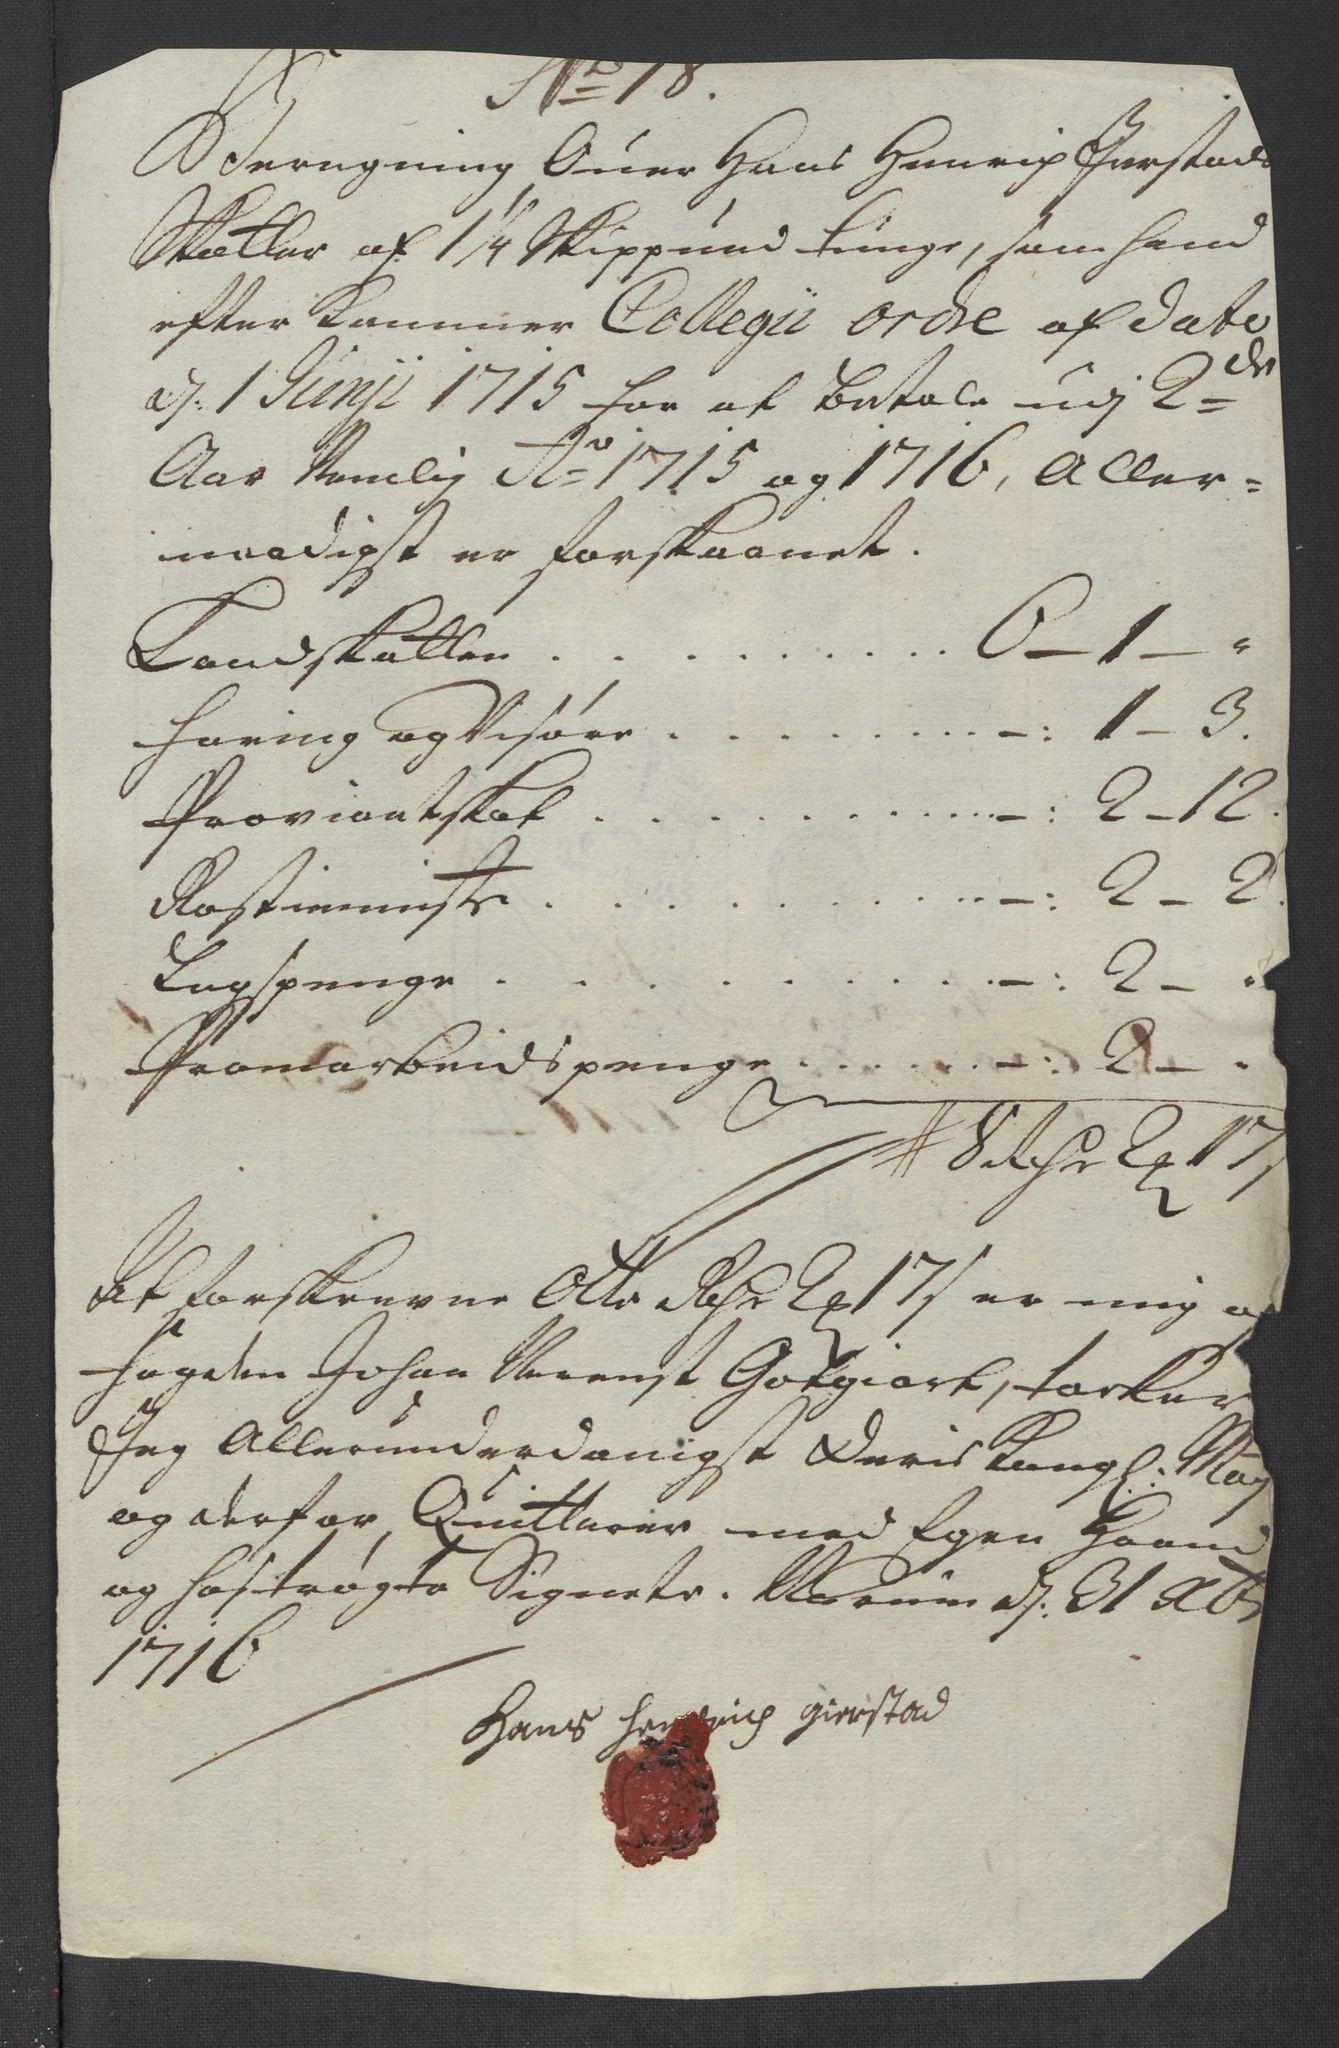 No 18.
Beregning Ofuer Hans Henrich Gierstads
Skatter af 1 1/4 Skippund tunge, som hand
efter Kammer Collegii ordre af dato
d: 1 Junji 1715 for at betale udj 2de
Aar Nemlig Ao 1715 og 1716, Aller=
naadigst er forskaanet.
Landskatten . . . . . . . . . . 0 – 1 – "
Foring og Visøre . . . . . . . . . –: 1 – 3.
Proviantskat . . . . . . . . . . –: 2 – 12.
Rostieneste . . . . . . . . . . –: 2 – 2.
Lugspenge . . . . . . . . . . –: 2 – "
Pramarbeidspenge . . . . . . –: 2 – "
8 Rdr 2 17 s
At forskrevne Otte Rdr 2 17 s er mig af
Fogden Johan Gotgiort, takker
Jeg Allerunderdanigst Deris Kongl: May
og derfor Quitterer med Egen Haand
og hostrøgte Signete. d: 31 Xbr
1716
Hans Hendrich gierstad